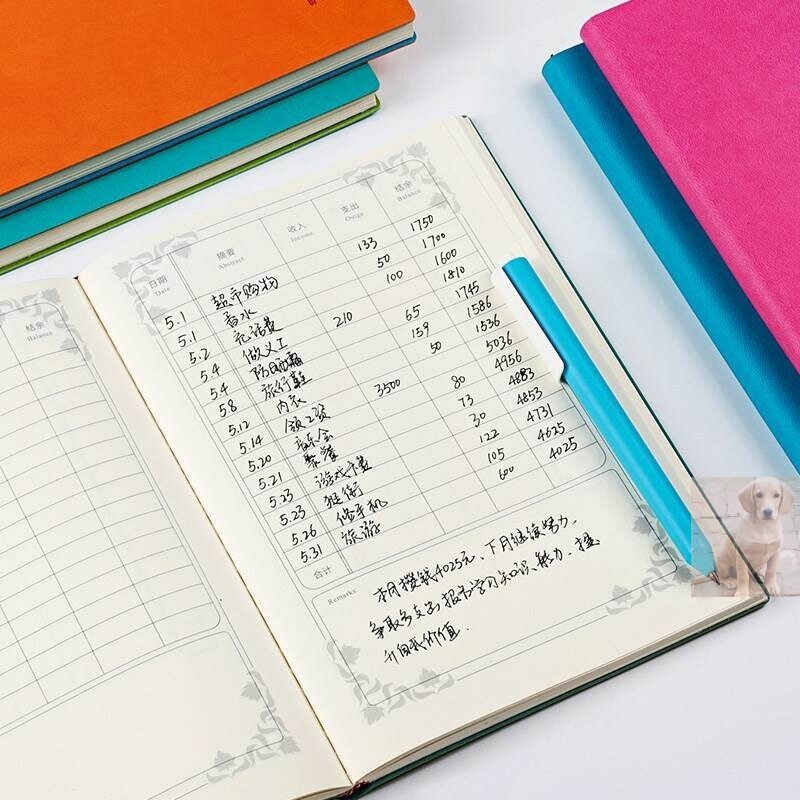 结余
Balance
日期 摘要 收入 支出 结余
Date Abstract Income Outgo Balance
5.1 超市购物 133 1750
5.1 香水 50 1700
5.2 充话费 100 1600
5.4 做义工 210 1810
5.4 防晒霜 65 1745
5.8 旅行鞋 159 1586
5.12 内衣 50 1536
5.14 领工资 3500 5036
5.20 80 4956
5.21 聚餐 73 4883
5.23 游戏卡费 30 4853
5.23 逛街 122 4731
5.26 修手机 105 4625
5.31 旅游 600 4025
合计
Remarks:
本月攒钱4025元、下月继续努力、
争取多支出报书学习知识、能力、提
升自我价值.